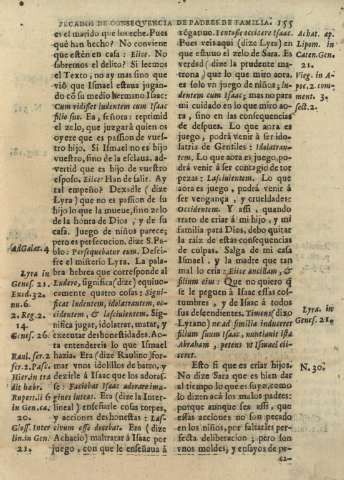 PECADOS DE CONSEQUENCIA DE PADRES DE FAMILIA. 155
es el marido que los eche. Pues
què han hecho? No conviene
que estèn en casa: Eiice. No
sabremos el delito? Si leemos
el Texto, no ay mas sino que
viò que Ismael estava jugan-
do cõ su medio hermano Isaac:
Cum vidisset ludentem cum Isaac
filio suo. Ea, señora: reprimid
el zelo, que juzgarà quien os
oyere que es passion de vues-
tro hijo. Si Ismael no es hijo
vuestro, sino de la esclava, ad-
vertid que es hijo de vuestro
esposo. Eiice? Han de salir. Ay
tal empeño? Dexadle (dize
Lyra) que no es passion de su
hijo lo que la mueve, sino zelo
de la honra de Dios, y de su
casa. Juego de niños parece;
pero es persecucion, dize S. Pa-
blo: Persequebatur eum. Desci-
fre el misterio Lyra. La pala-
bra hebrea que corresponde al
Ludere, significa (dize) equivo-
camente quatro cosas: Signifi-
cat ludentem, idolatrantem, oc-
cidentem, & lasciuientem. Sig-
nifica jugar, idolatrar, matar, y
executar deshonestidades. Ao-
ra entendereis lo que Ismael
hazia. Era (dize Raulino) for-
mar vnos idolillos de barro, y
dezirle à Isaac que los adoras-
se: Faciebat Isaac adorare ima-
gines luteas. Era (dize la Inter-
lineal) enseñarle cosas torpes,
y acciones deshonestas: Las-
civum esse docebat. Era (dize
Achacio) maltratar à Isaac por
juego, con que le enseñava à
Ad Galat. 4
Lyra in
Genes. 21.
Exod. 32.
2. Reg. 2.
14.
Genes. 26
Raul. ser. 2
fer. 2. Pasc.
Hier. in tra
dit. hebr.
Rupert. li 6
in Gen. ca.
20.
Gloss. Inter
lin. in Gen.
21.
vengarse: Tentasse occidere Isaac.
Pues veis aqui (dize Lyra) en
que estuvo el zelo de Sara. Es
verdad (dize la prudente ma-
trona) que lo que miro aora,
es solo vn juego de niños; lu-
dentem cum Isaac; mas no para
mi cuidado en lo que miro ao-
ra, sino en las consequencias
de despues. Lo que aora es
juego, podrà venir à ser ido-
latria de Gentiles: Idolatran-
tem. Lo que aora es juego, po-
drà venir à ser contagio de tor-
pezas: Lasciuientem. Lo que
aora es juego, podrà venir à
ser vengança, y crueldades:
Occidentem. Y assi, quando
trato de criar à mi hijo, y mi
familia para Dios, debo quitar
la raiz de estas consequencias
de culpas. Salga de mi casa
Ismael, y la madre que tan
mal lo cria: Eiice ancillam, &
filium eius: Que no quiero q̃
se le peguen à Isaac essas cos-
tumbres, y de Isaac à todos
sus descendientes. Timens (dixo
Lyrano) ne ad similia induceret
filium suum Isaac, nuntiavit ista
Abraham, petens vt Ismael eii-
ceret.
Esto si que es criar hijos.
No dize Sara que es bien dar
al tiempo lo que es suyo, como
lo dizen acà los malos padres;
porque aunque sea assi, que
estas acciones no son pecado
en los niños, por faltarles per-
fecta deliberacion; pero son
vnos moldes, y ensayos de pe-
ca-
Achat. ap.
Lipom. in
Caten. Gen.
21.
Vieg. in A-
poc. 2. com-
ment. 3.
sect. 2.
Lyra. in
Genes. 21.
N. 30.